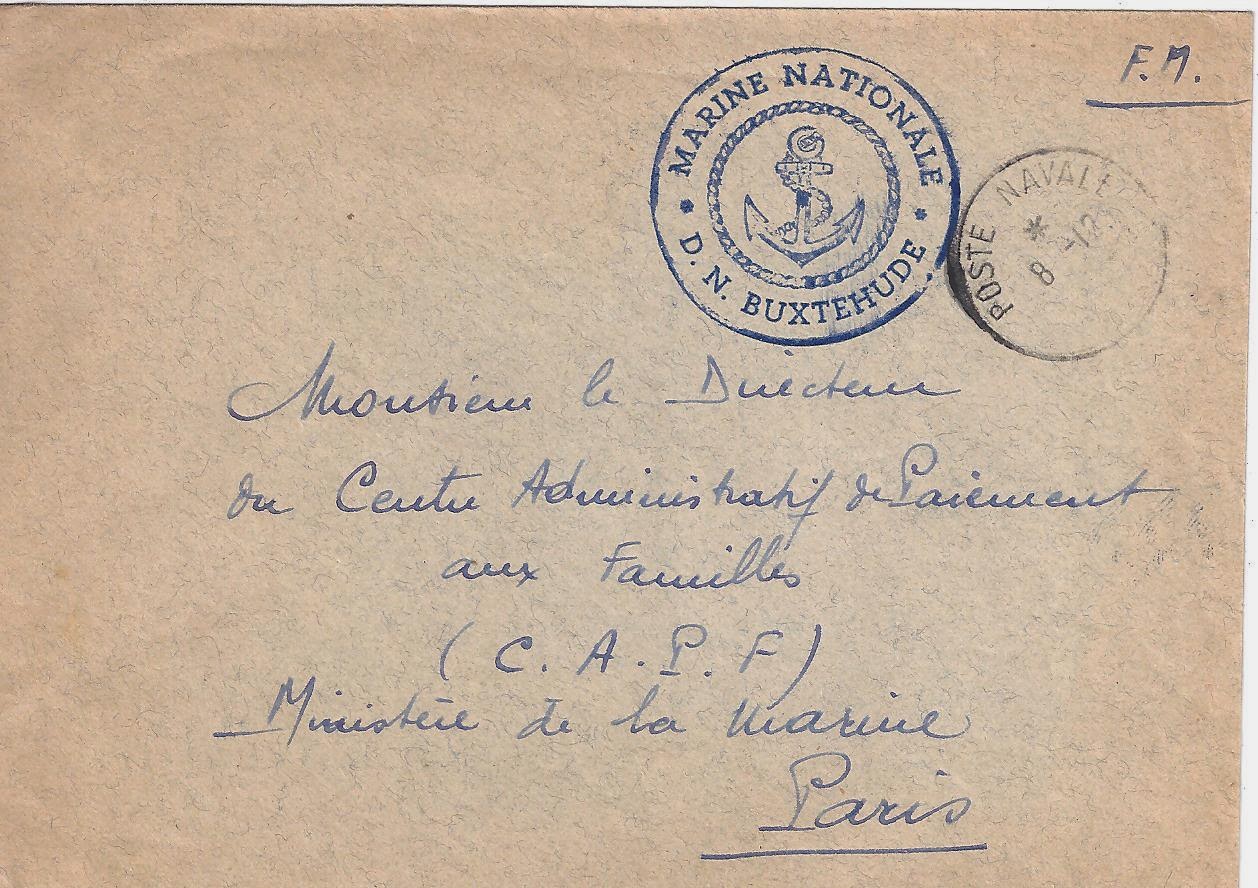 F.M.
MARINE NATIONALE
* D. N. BUXTEHUDE *
POSTE NAVALE
*
8 -12
Monsieur le Directeur
du Centre Administratif de Paiement
aux Familles
(C. A. P. F)
Ministère de la Marine
Paris